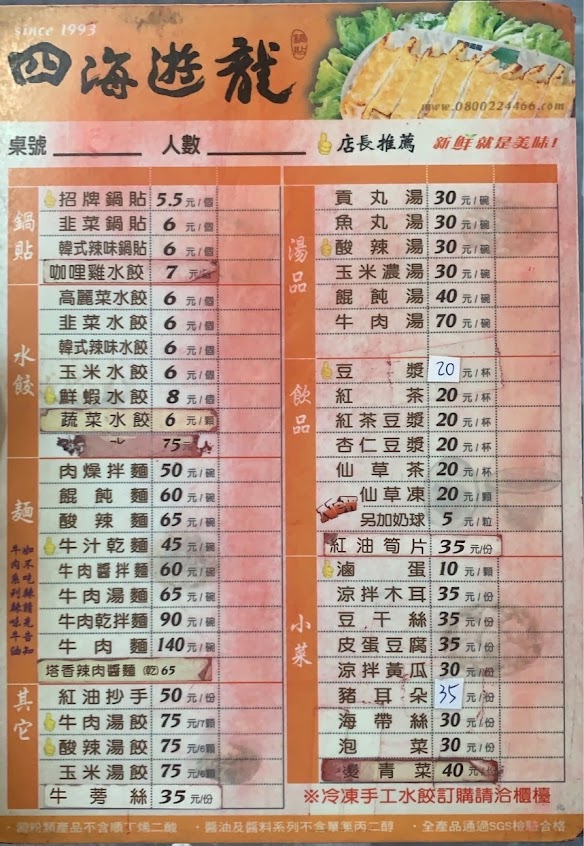 since 1993
四海遊龍 鍋貼
www.0800224466.com
桌號 人數 店長推薦 新鮮就是美味!
鍋貼
招牌鍋貼 5.5 元/個
韭菜鍋貼 6 元/個
韓式辣味鍋貼 6 元/個
咖哩雞水餃 7 元/個
水餃
高麗菜水餃 6 元/個
韭菜水餃 6 元/個
韓式辣味水餃 6 元/個
玉米水餃 6 元/個
鮮蝦水餃 8 元/個
蔬菜水餃 6 元/顆
75
麵
如不吃辣請先告知
牛肉系列辣味牛油
肉燥拌麵 50 元/碗
餛飩麵 60 元/碗
酸辣麵 65 元/碗
牛汁乾麵 45 元/碗
牛肉醬拌麵 60 元/碗
牛肉湯麵 65 元/碗
牛肉乾拌麵 90 元/碗
牛肉麵 140 元/碗
塔香辣肉醬麵(乾)65
其它
紅油抄手 50 元/份
牛肉湯餃 75 元/7顆
酸辣湯餃 75 元/6顆
玉米湯餃 75 元/6顆
牛蒡絲 35 元/份
湯品
貢丸湯 30 元/碗
魚丸湯 30 元/碗
酸辣湯 30 元/碗
玉米濃湯 30 元/碗
餛飩湯 40 元/碗
牛肉湯 70 元/碗
飲品
豆漿 20 元/杯
紅茶 20 元/杯
紅茶豆漿 20 元/杯
杏仁豆漿 20 元/杯
仙草茶 20 元/杯
仙草凍 20 元/顆
NEW 另加奶球 5 元/粒
紅油筍片 35 元/份
小菜
滷蛋 10 元/顆
涼拌木耳 35 元/份
豆干絲 35 元/份
皮蛋豆腐 35 元/份
涼拌黃瓜 30 元/份
豬耳朵 35 元/份
海帶絲 30 元/份
泡菜 30 元/份
燙青菜 40 元/份
※冷凍手工水餃訂購請洽櫃檯
·澱粉類產品不含順丁烯二酸 ·醬油及醬料系列不含單氯丙二醇 ·全產品通過SGS檢驗合格